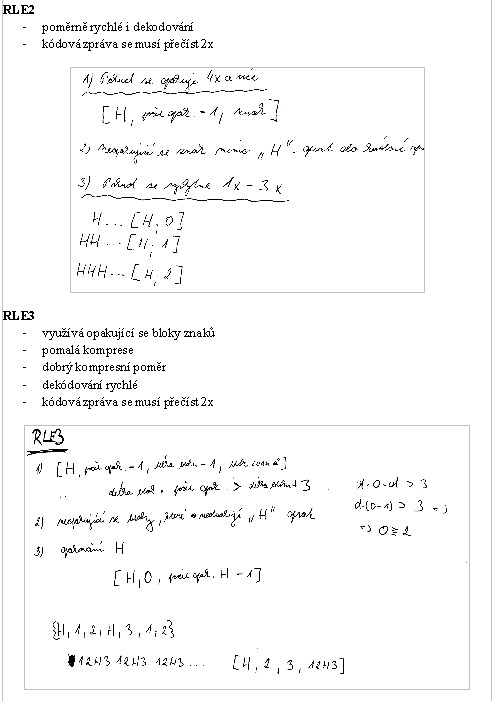 RLE2
- poměrně rychlé i dekodování
- kódová zpráva se musí přečíst 2x
1) Pokud se opakuje 4x a více
[H, počet opak. -1, znak]
2) neopakující se znak mimo „H“
3) Pokud se vyskytne 1x - 3x
H...[H, 0]
HH...[H, 1]
HHH...[H, 2]
RLE3
- využívá opakující se bloky znaků
- pomalá komprese
- dobrý kompresní poměr
- dekódování rychlé
- kódová zpráva se musí přečíst 2x
RLE3
1) [H, počet opak. -1, -1, ]
počet opak. > + 3
d·(O-1) > 3 =>
2) neopakující se bloky, které „H“
=> O ≥ 2
3) H
[H, 0, počet opak. H -1]
{H, 1, 2, H, 3, 1, 2}
12H3 12H3 12H3 ... [H, 2, 3, 12H3]